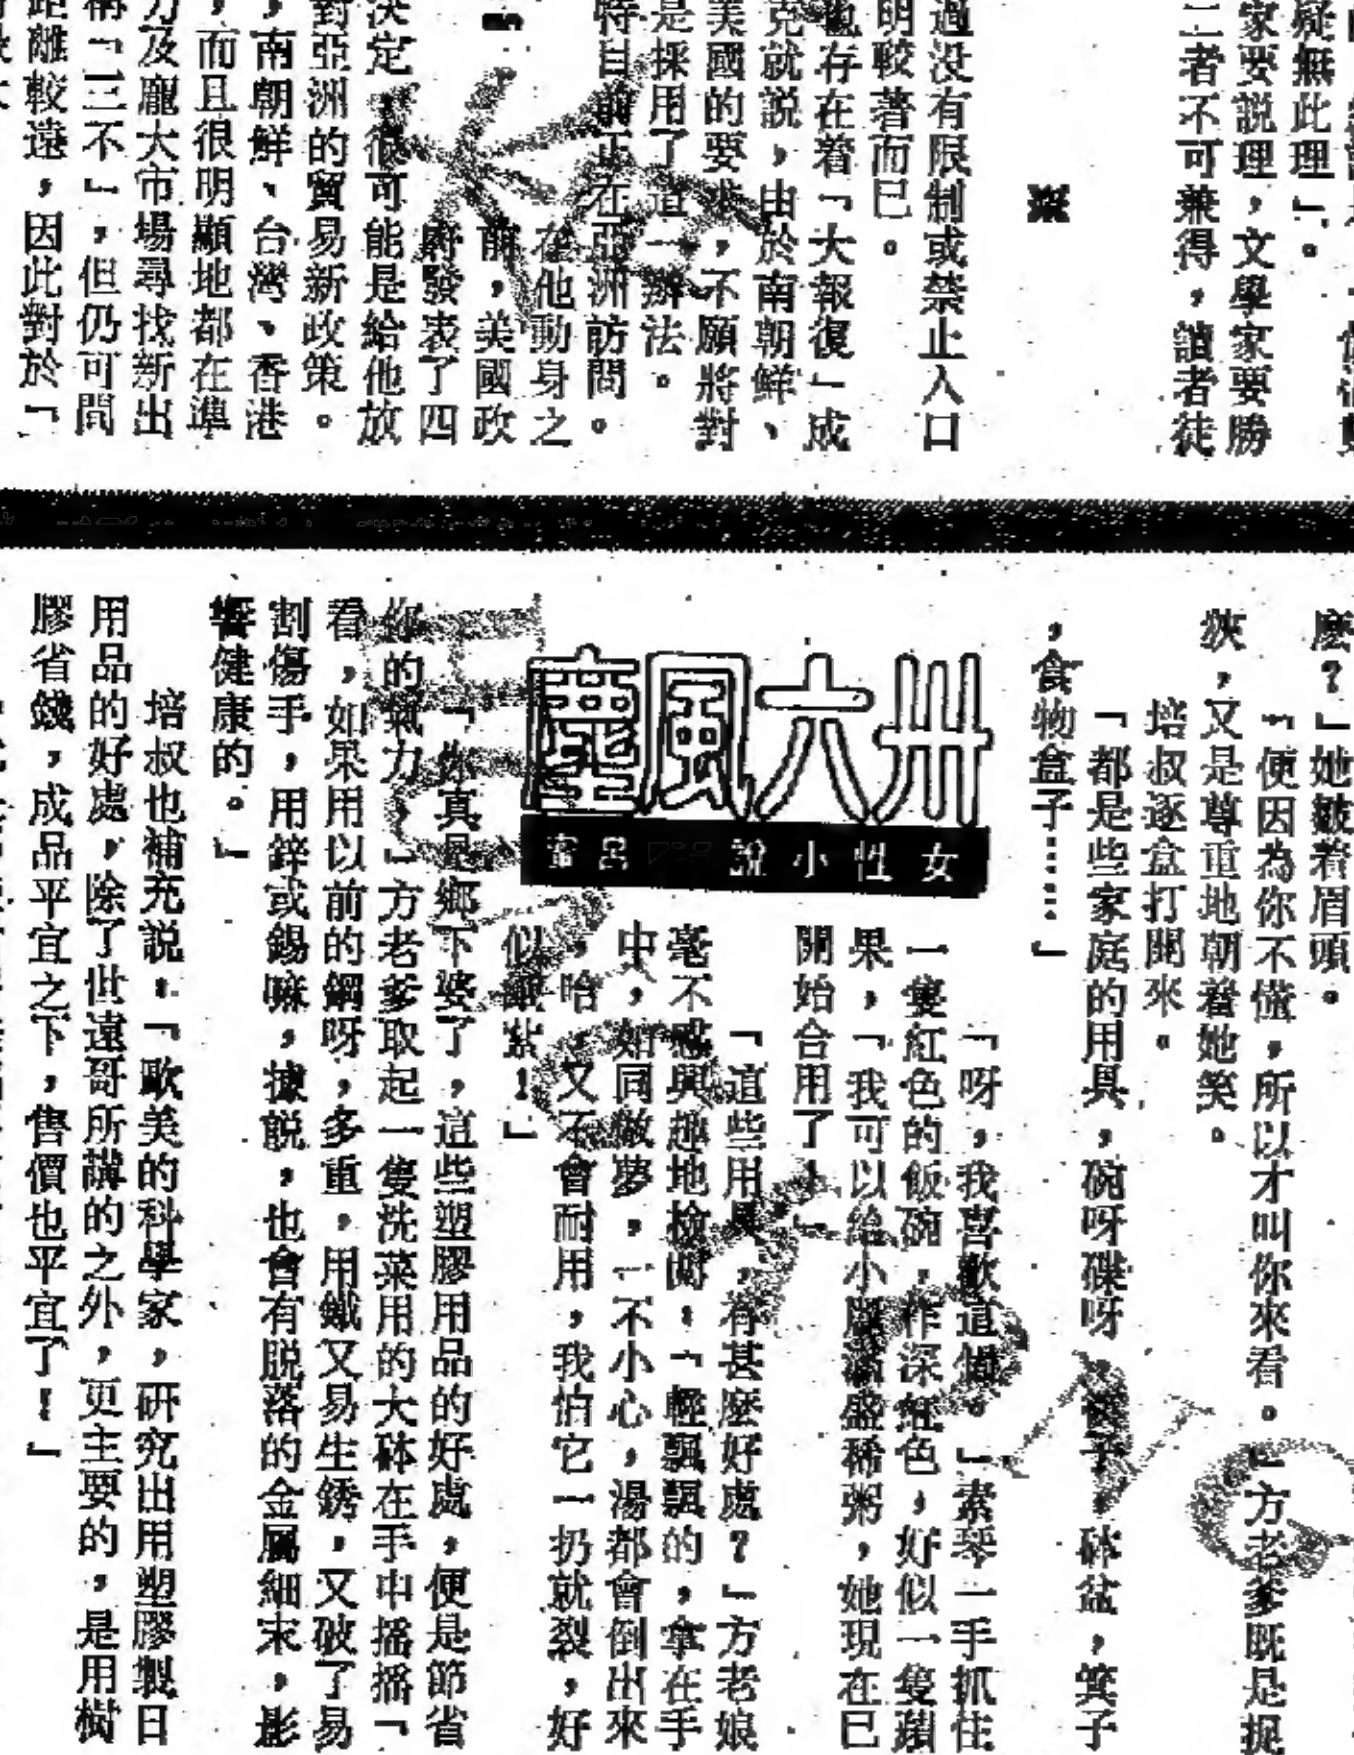 疑無此理」。
家要説理，文學家要勝
二者不可兼得，讀者徒
過没有限制或禁止入口
明較著而已。
也存在着「大報復」成
克就説，由於南朝鮮、
美國的要求，不願將對
是採用了這一辦法。
特目前正在亞洲訪問。
在他動身之
前，美國政
府發表了四
決定，很可能是給他放
對亞洲的貿易新政策。
，南朝鮮、台灣、香港
，而且很明顯地都在準
力及龐大市場尋找新出
稱「三不」，但仍可間
距離較遠，因此對於「
麽？」她皺着眉頭。
「便因為你不懂，所以才叫你來看。」方老爹既是捉
狹，又是尊重地朝着她笑。
培叔逐盒打開來。
「都是些家庭的用具，碗呀碟呀，筷子，砵盆，箕子
，食物盒子……」
卅六風塵
女性小說 呂
「呀，我喜歡這個。」素琴一手抓住
一隻紅色的飯碗，作深紅色，好似一隻蘋
果，「我可以給小鳳滿盛稀粥，她現在已
開始合用了！」
「這些用具，有甚麽好處？」方老娘
毫不感興趣地撿閱，「輕飄飄的，拿在手
中，如同做夢，一不小心，湯都會倒出來
，哈，又不會耐用，我怕它一扔就裂，好
似紙紮！」
「你真是鄉下婆了，這些塑膠用品的好處，便是節省
你的氣力」方老爹取起一隻洗菜用的大砵在手中搖搖「
看，如果用以前的鋼呀，多重，用鐵又易生銹，又破了易
割傷手，用鋅或錫嘛，據説，也會有脱落的金屬細末，影
響健康的。」
培叔也補充説：「歐美的科學家，研究出用塑膠製日
用品的好處，除了世遠哥所講的之外，更主要的，是用樹
膠省錢，成品平宜之下，售價也平宜了！」